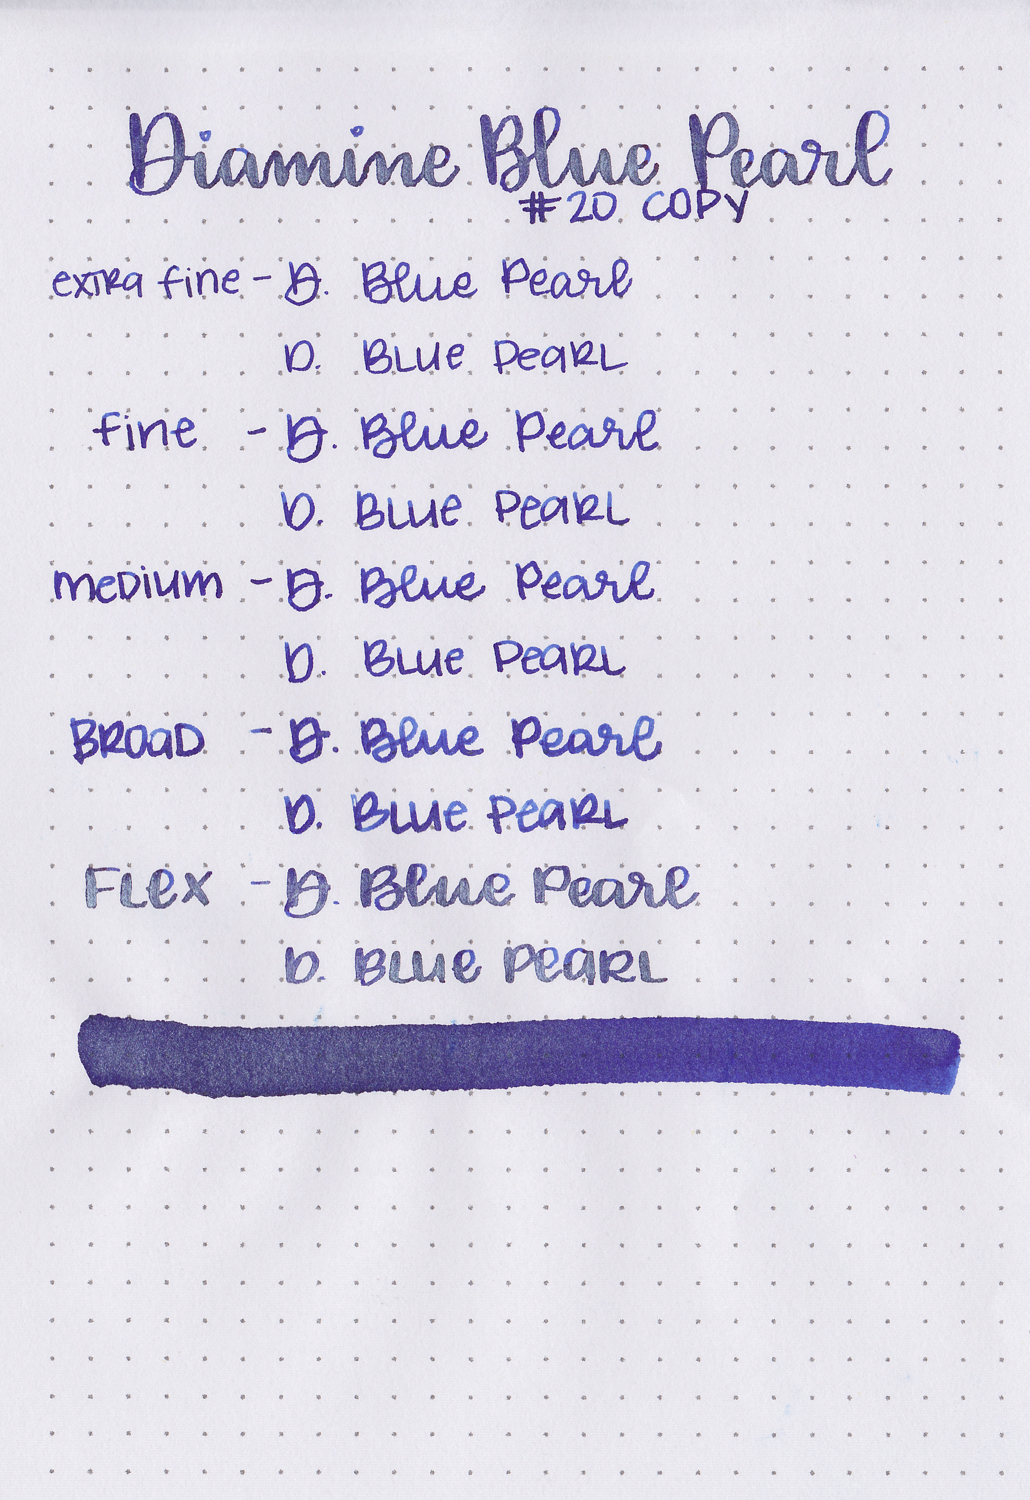 Diamine Blue Pearl
#20 COPY
extra fine - D. Blue Pearl
D. Blue Pearl
fine - D. Blue Pearl
D. Blue Pearl
medium - D. Blue Pearl
D. Blue Pearl
Broad - D. Blue Pearl
D. Blue Pearl
Flex - D. Blue Pearl
D. Blue Pearl